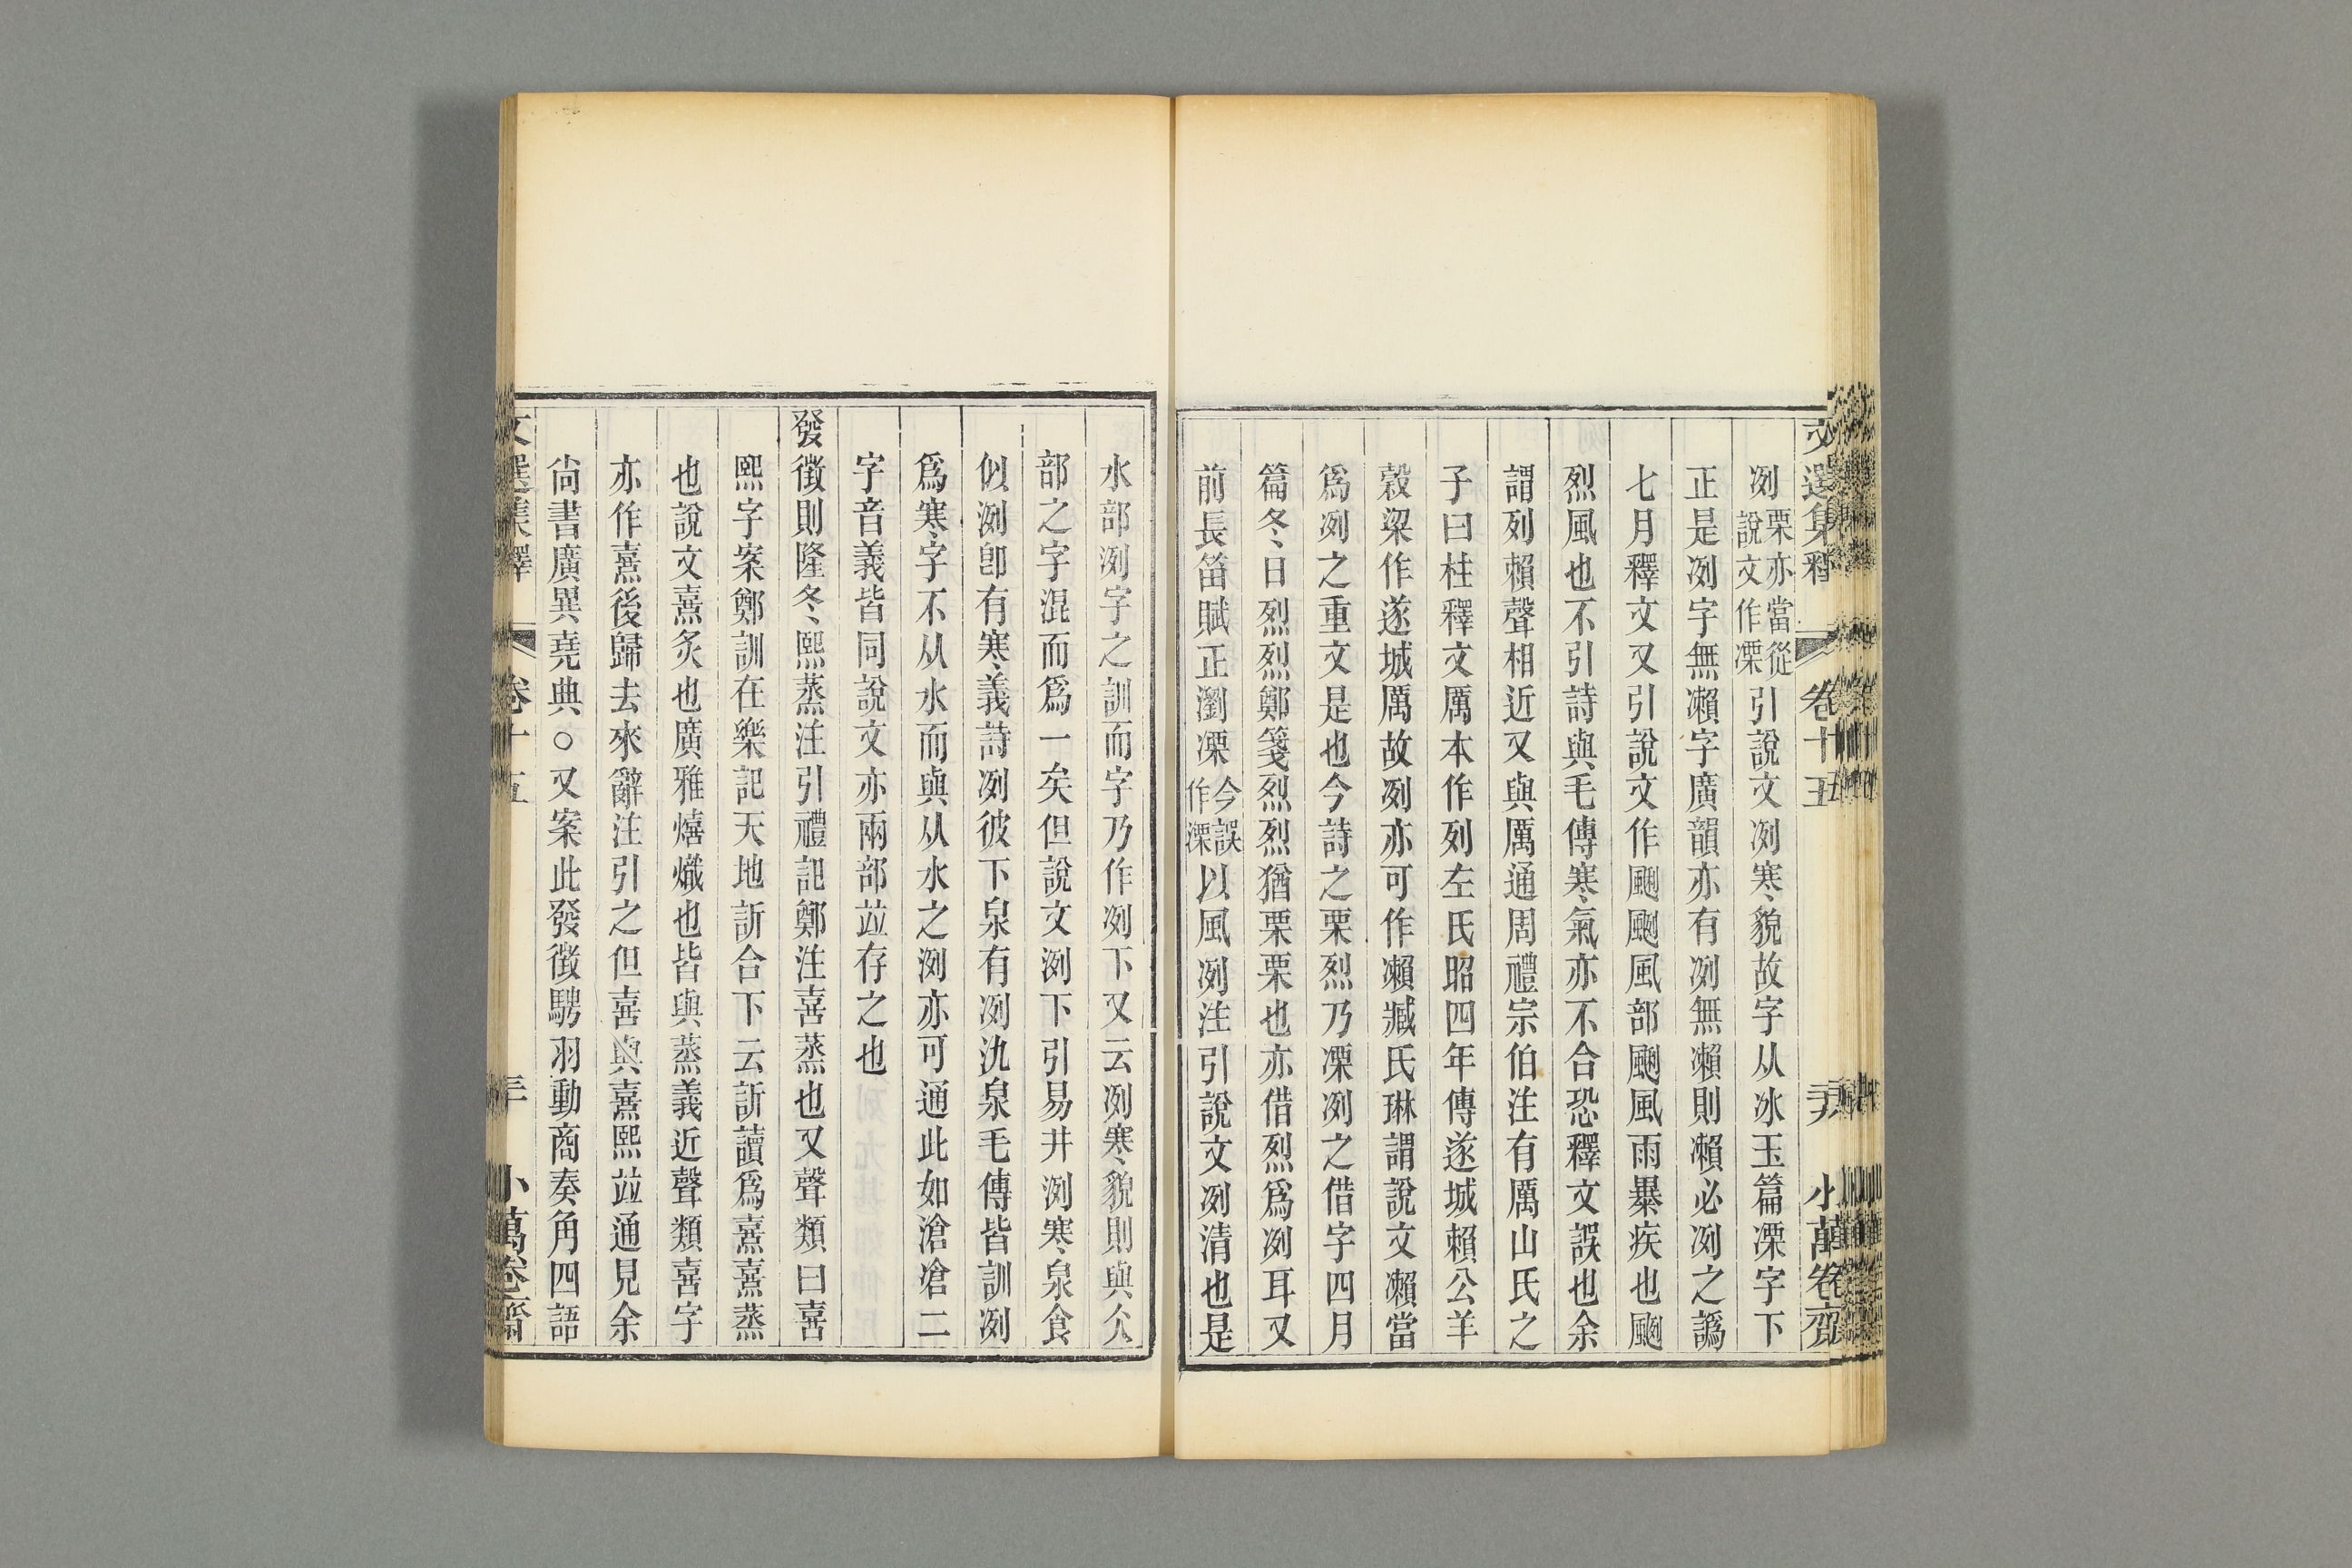 文選集釋 卷十五 天 小萬卷齋
冽栗亦當從說文作凓引說文冽寒貌故字从冰玉篇凓字下
正是冽字無瀨字廣韻亦有冽無瀨則瀨必冽之譌
七月釋文又引說文作颲颲風部颲風雨暴疾也颲
烈風也不引詩與毛傳寒氣亦不合恐釋文誤也余
謂列賴聲相近又與厲通周禮宗伯注有厲山氏之
子曰柱釋文厲本作列左氏昭四年傳遂城賴公羊
穀梁作遂城厲故冽亦可作瀨臧氏琳謂說文瀨當
爲冽之重文是也今詩之栗烈乃凓冽之借字四月
篇冬日烈烈鄭箋烈烈猶栗栗也亦借烈爲冽耳又
前長笛賦正瀏凓今誤作溧以風冽注引說文冽清也是
水部洌字之訓而字乃作冽下又云冽寒貌則與仌
部之字混而爲一矣但說文洌下引易井洌寒泉食
似洌卽有寒義詩冽彼下泉有冽氿泉毛傳皆訓冽
爲寒字不从水而與从水之洌亦可通此如滄凔二
字音義皆同說文亦兩部竝存之也
發徵則隆冬熙蒸注引禮記鄭注熹蒸也又聲類曰熹
熙字案鄭訓在樂記天地訢合下云訢讀爲熹熹蒸
也說文熹炙也廣雅熺熾也皆與蒸義近聲類熹字
亦作熹後歸去來辭注引之但喜與熹熙竝通見余
尙書廣異堯典○又案此發徵騁羽動商奏角四語
文選集釋 卷十五 三十 小萬卷齋